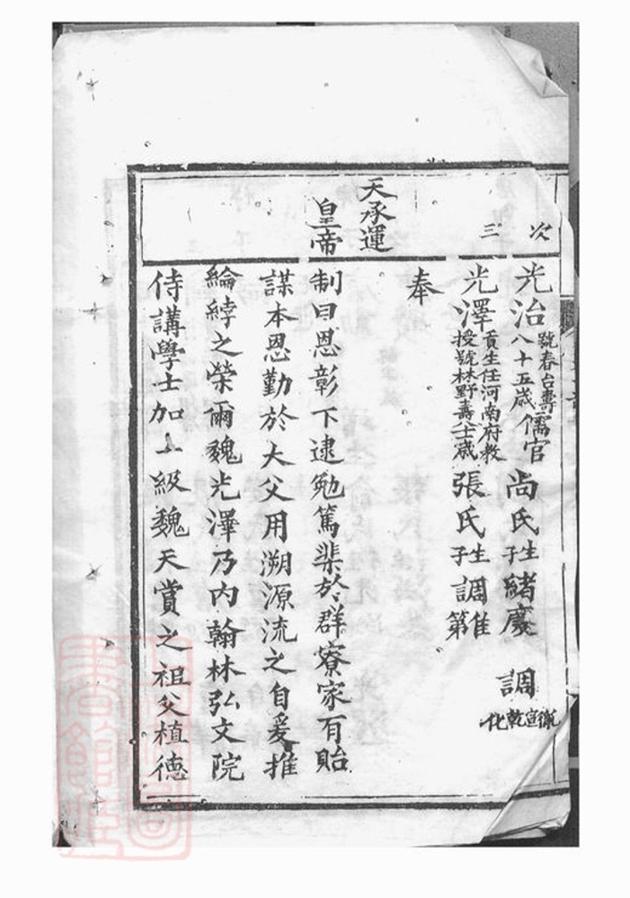 次 光治 號春台壽八十五歲 儒官 尚氏 生子 緒慶 調
三 光澤 貢生任河南府教授號林野壽八十歲 張氏 生子 調 第
奉
天承運
皇帝制曰恩彰下逮勉篤棐於群寮家有貽
謀本恩勤於大父用溯源流之自爰推
綸綍之榮爾魏光澤乃內翰林弘文院
侍講學士加一級魏天賞之祖父植德